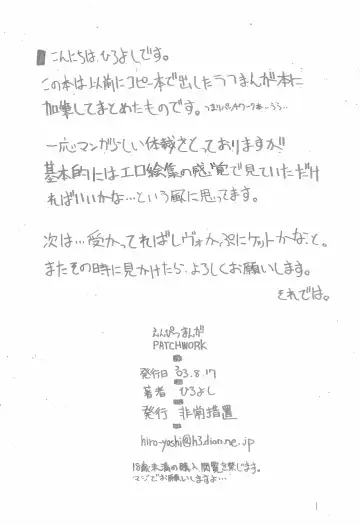 こんにちは、ひろよしです。
この本は以前にコピー本で出したラフまんが本に
加筆してまとめたものです。つまりパッチワーク本…うう…
一応マンガらしい体裁をとっておりますが
基本的にはエロ絵集の感覚で見ていただけ
ればいいかな…という風に思ってます。
次は…受かってればレヴォか、次にケットかな、と。
またその時に見かけたら、よろしくお願いします。
それでは。
えんぴつまんが
PATCHWORK
発行日 '03.8.17
著者 ひろよし
発行 非常措置
hiro-yoshi@h3.dion.ne.jp
18歳未満の購入、閲覧を禁じます。
マジでお願いしますよ…
1